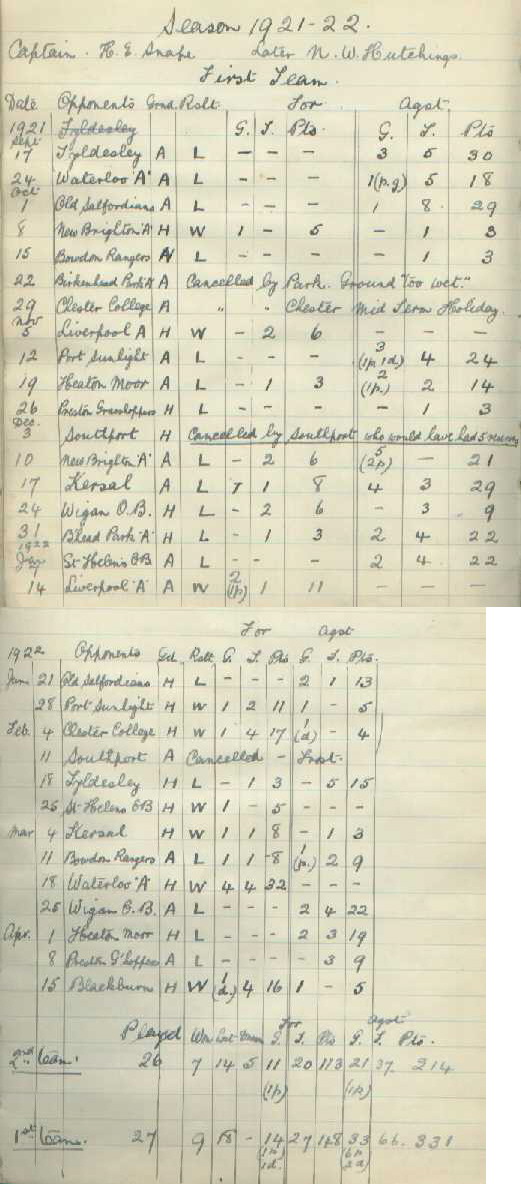 Season 1921-22.
Captain. H. E. Snape Later N. W. Hutchings.
First Team.
Date Opponents Grnd. Rslt. For Agst.
1921 Tyldesley G. T. Pts. G. T. Pts
Sept 17 Tyldesley A L - - - 3 5 30
24 Waterloo 'A' A L - - - 1(p.g) 5 18
Oct 1 Old Salfordians A L - - - 1 8 29
8 New Brighton 'A' H W 1 - 5 - 1 3
15 Bowdon Rangers L - - - - 1 3
22 Birkenhead Park 'A' A Cancelled by Park. Ground "too wet."
29 Chester College A " " Chester Mid Term Holiday.
Nov 5 Liverpool A H W - 2 6 - - -
12 Port Sunlight A L - - - 3 (1p 1d.) 4 24
19 Heaton Moor A L - 1 3 2 (1p.) 2 14
26 Preston Grasshoppers H L - - - - 1 3
Dec. 3 Southport H Cancelled by Southport who would have had 5 reserves
10 New Brighton 'A' A L - 2 6 5 (2p) - 21
17 Kersal A L 1 1 8 4 3 29
24 Wigan O.B. H L - 2 6 - 3 9
31 B'head Park 'A' H L - 1 3 2 4 22
1922 Jan 7 St Helens OB A L - - - 2 4 22
14 Liverpool 'A' A W 2 (1p) 1 11 - - -
For Agst
1922 Opponents Gd. Rslt G. T. Pts G. T. Pts.
Jan 21 Old Salfordians H L - - - 2 1 13
28 Port Sunlight H W 1 2 11 1 - 5
Feb. 4 Chester College H W 1 4 17 1 (d) - 4
11 Southport A Cancelled - Frost.
18 Tyldesley H L - 1 3 - 5 15
25 St Helens OB H W 1 - 5 - - -
Mar 4 Kersal H W 1 1 8 - 1 3
11 Bowdon Rangers A L 1 1 8 1 (p.) 2 9
18 Waterloo 'A' H W 4 4 32 - - -
25 Wigan O.B. A L - - - 2 4 22
Apr. 1 Heaton Moor H L - - - 2 3 19
8 Preston G'hoppers A L - - - - 3 9
15 Blackburn H W 1 (d.) 4 16 1 - 5
For Agst
Played Won Lost Drawn G. T. Pts G. T. Pts.
2nd team. 26 7 14 5 11 (1p) 20 113 21 (1p) 37. 214
1st team. 27 9 18 - 14 (1p 1d. 27 148 33 (6p 2d) 66. 331